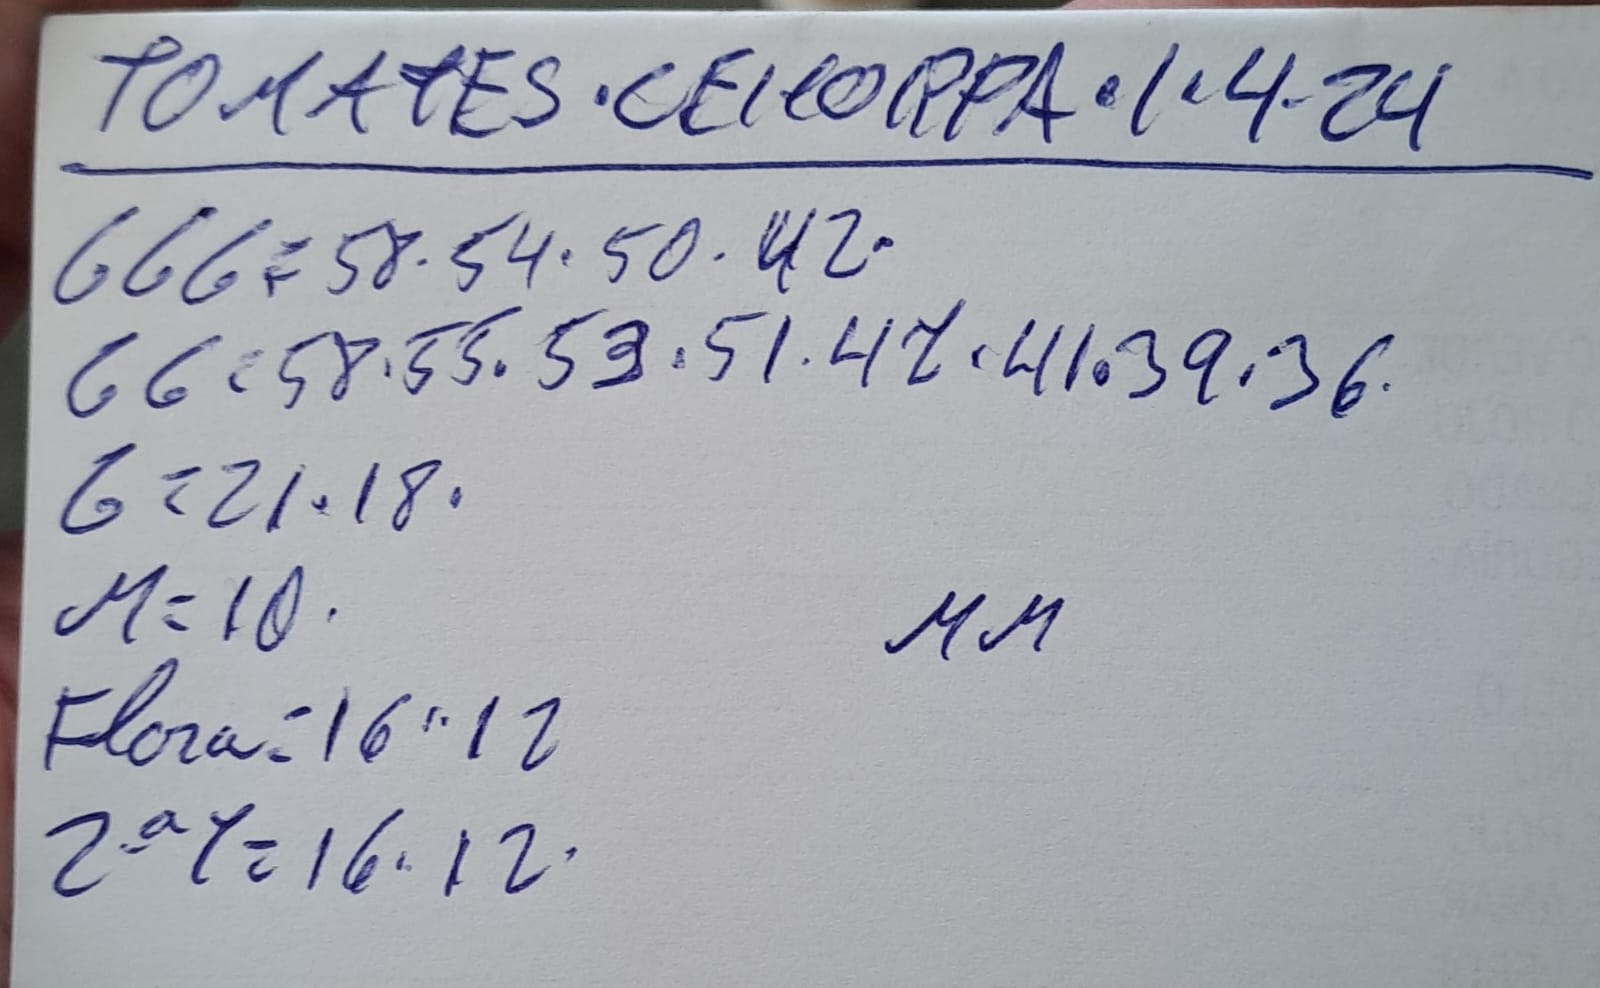 TOMATES · CEHORPA · 1·4-24
GGG = 58· 54· 50· 42·
GG = 58· 55· 53· 51· 47· 41· 39· 36·
G = 21· 18·
M = 10· MM
Flora = 16· 12
2ª Y = 16· 12·